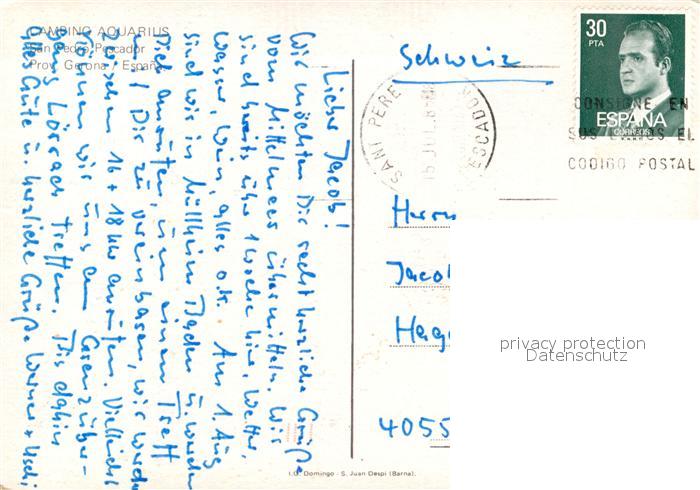 CAMPING AQUARIUS
San Pedro Pescador
Prov. Gerona / España
Lieber Jacob!
Wir möchten Dir recht herzliche Grüße
vom Mittelmeer übermitteln. Wir
sind bereits über 1 Woche hier, Wetter,
Wasser, Wein, alles o.k. Am 1. Aug
sind wir in Müllheim Baden u. werden
Dich anrufen, um einen Treff
mit Dir zu vereinbaren, wir werden
zwischen 16 + 18 Uhr anrufen. Vielleicht
können wir uns am Grenzüber-
gang Lörrach treffen. Bis dahin
alles Gute u. herzliche Grüße Werner + Uschi
Schweiz
SANT PERE PESCADOR
15 JUL
30
PTA
ESPAÑA
CORREOS
CONSIGNE EN
SUS ENVIOS EL
CODIGO POSTAL
Herrn
Jacob
Hage
4055
privacy protection
Datenschutz
I.G. Domingo - S. Juan Despi (Barna).